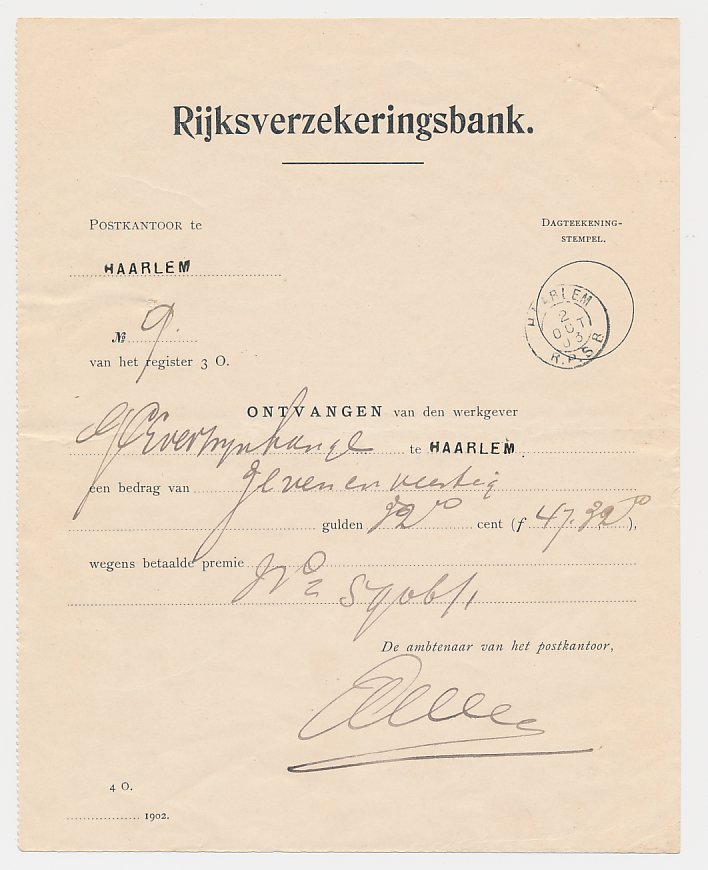 Rijksverzekeringsbank.
POSTKANTOOR te
HAARLEM
DAGTEEKENING-
STEMPEL.
HAARLEM
2 OCT 03
R.P.S.B
№ 9.
van het register 3 O.
ONTVANGEN van den werkgever
te HAARLEM.
een bedrag van zeven en veertig
gulden 32 cent (f 47.32),
wegens betaalde premie
De ambtenaar van het postkantoor,
4 O.
1902.